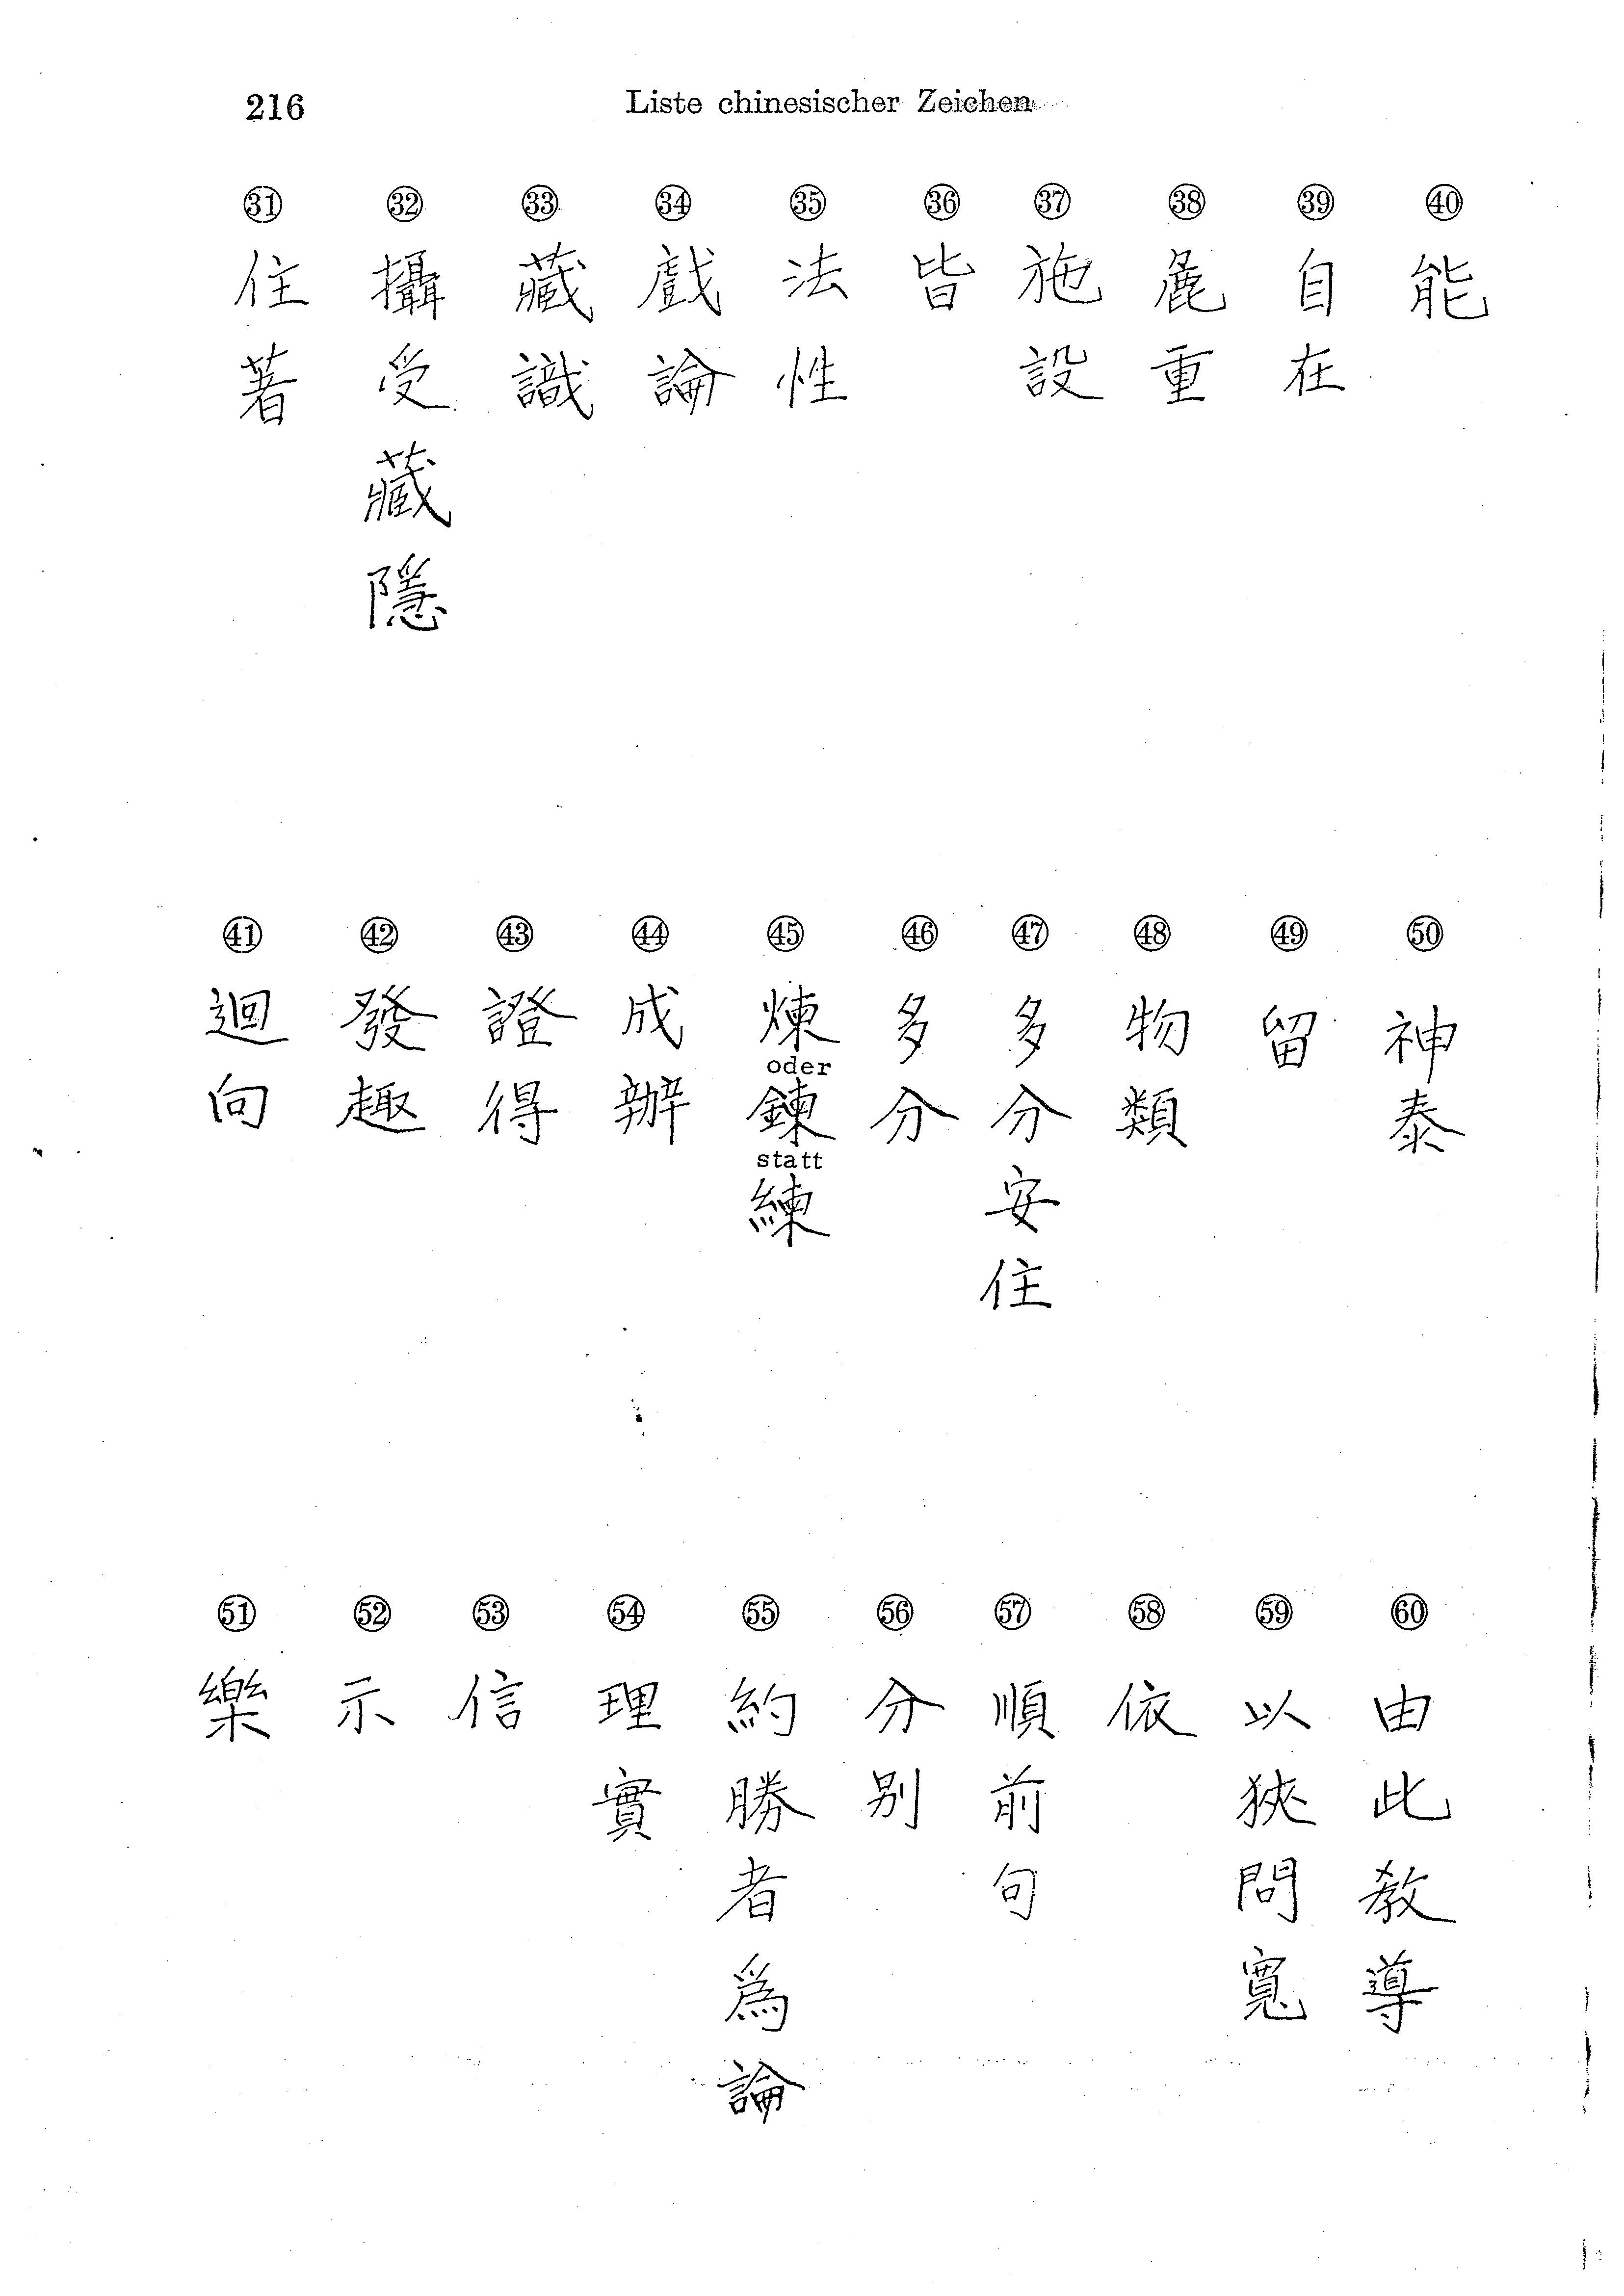 216
Liste chinesischer Zeichen
㉛ 住著
㉜ 攝受藏隱
㉝ 藏識
㉞ 戲論
㉟ 法性
㊱ 皆
㊲ 施設
㊳ 麁重
㊴ 自在
㊵ 能
㊶ 迴向
㊷ 發趣
㊸ 證得
㊹ 成辦
㊺ 煉 oder 鍊 statt 練
㊻ 多分
㊼ 多分安住
㊽ 物類
㊾ 留
㊿ 神泰
51 樂
52 示
53 信
54 理實
55 約勝者爲論
56 分別
57 順前句
58 依
59 以狹問寬
60 由此教導